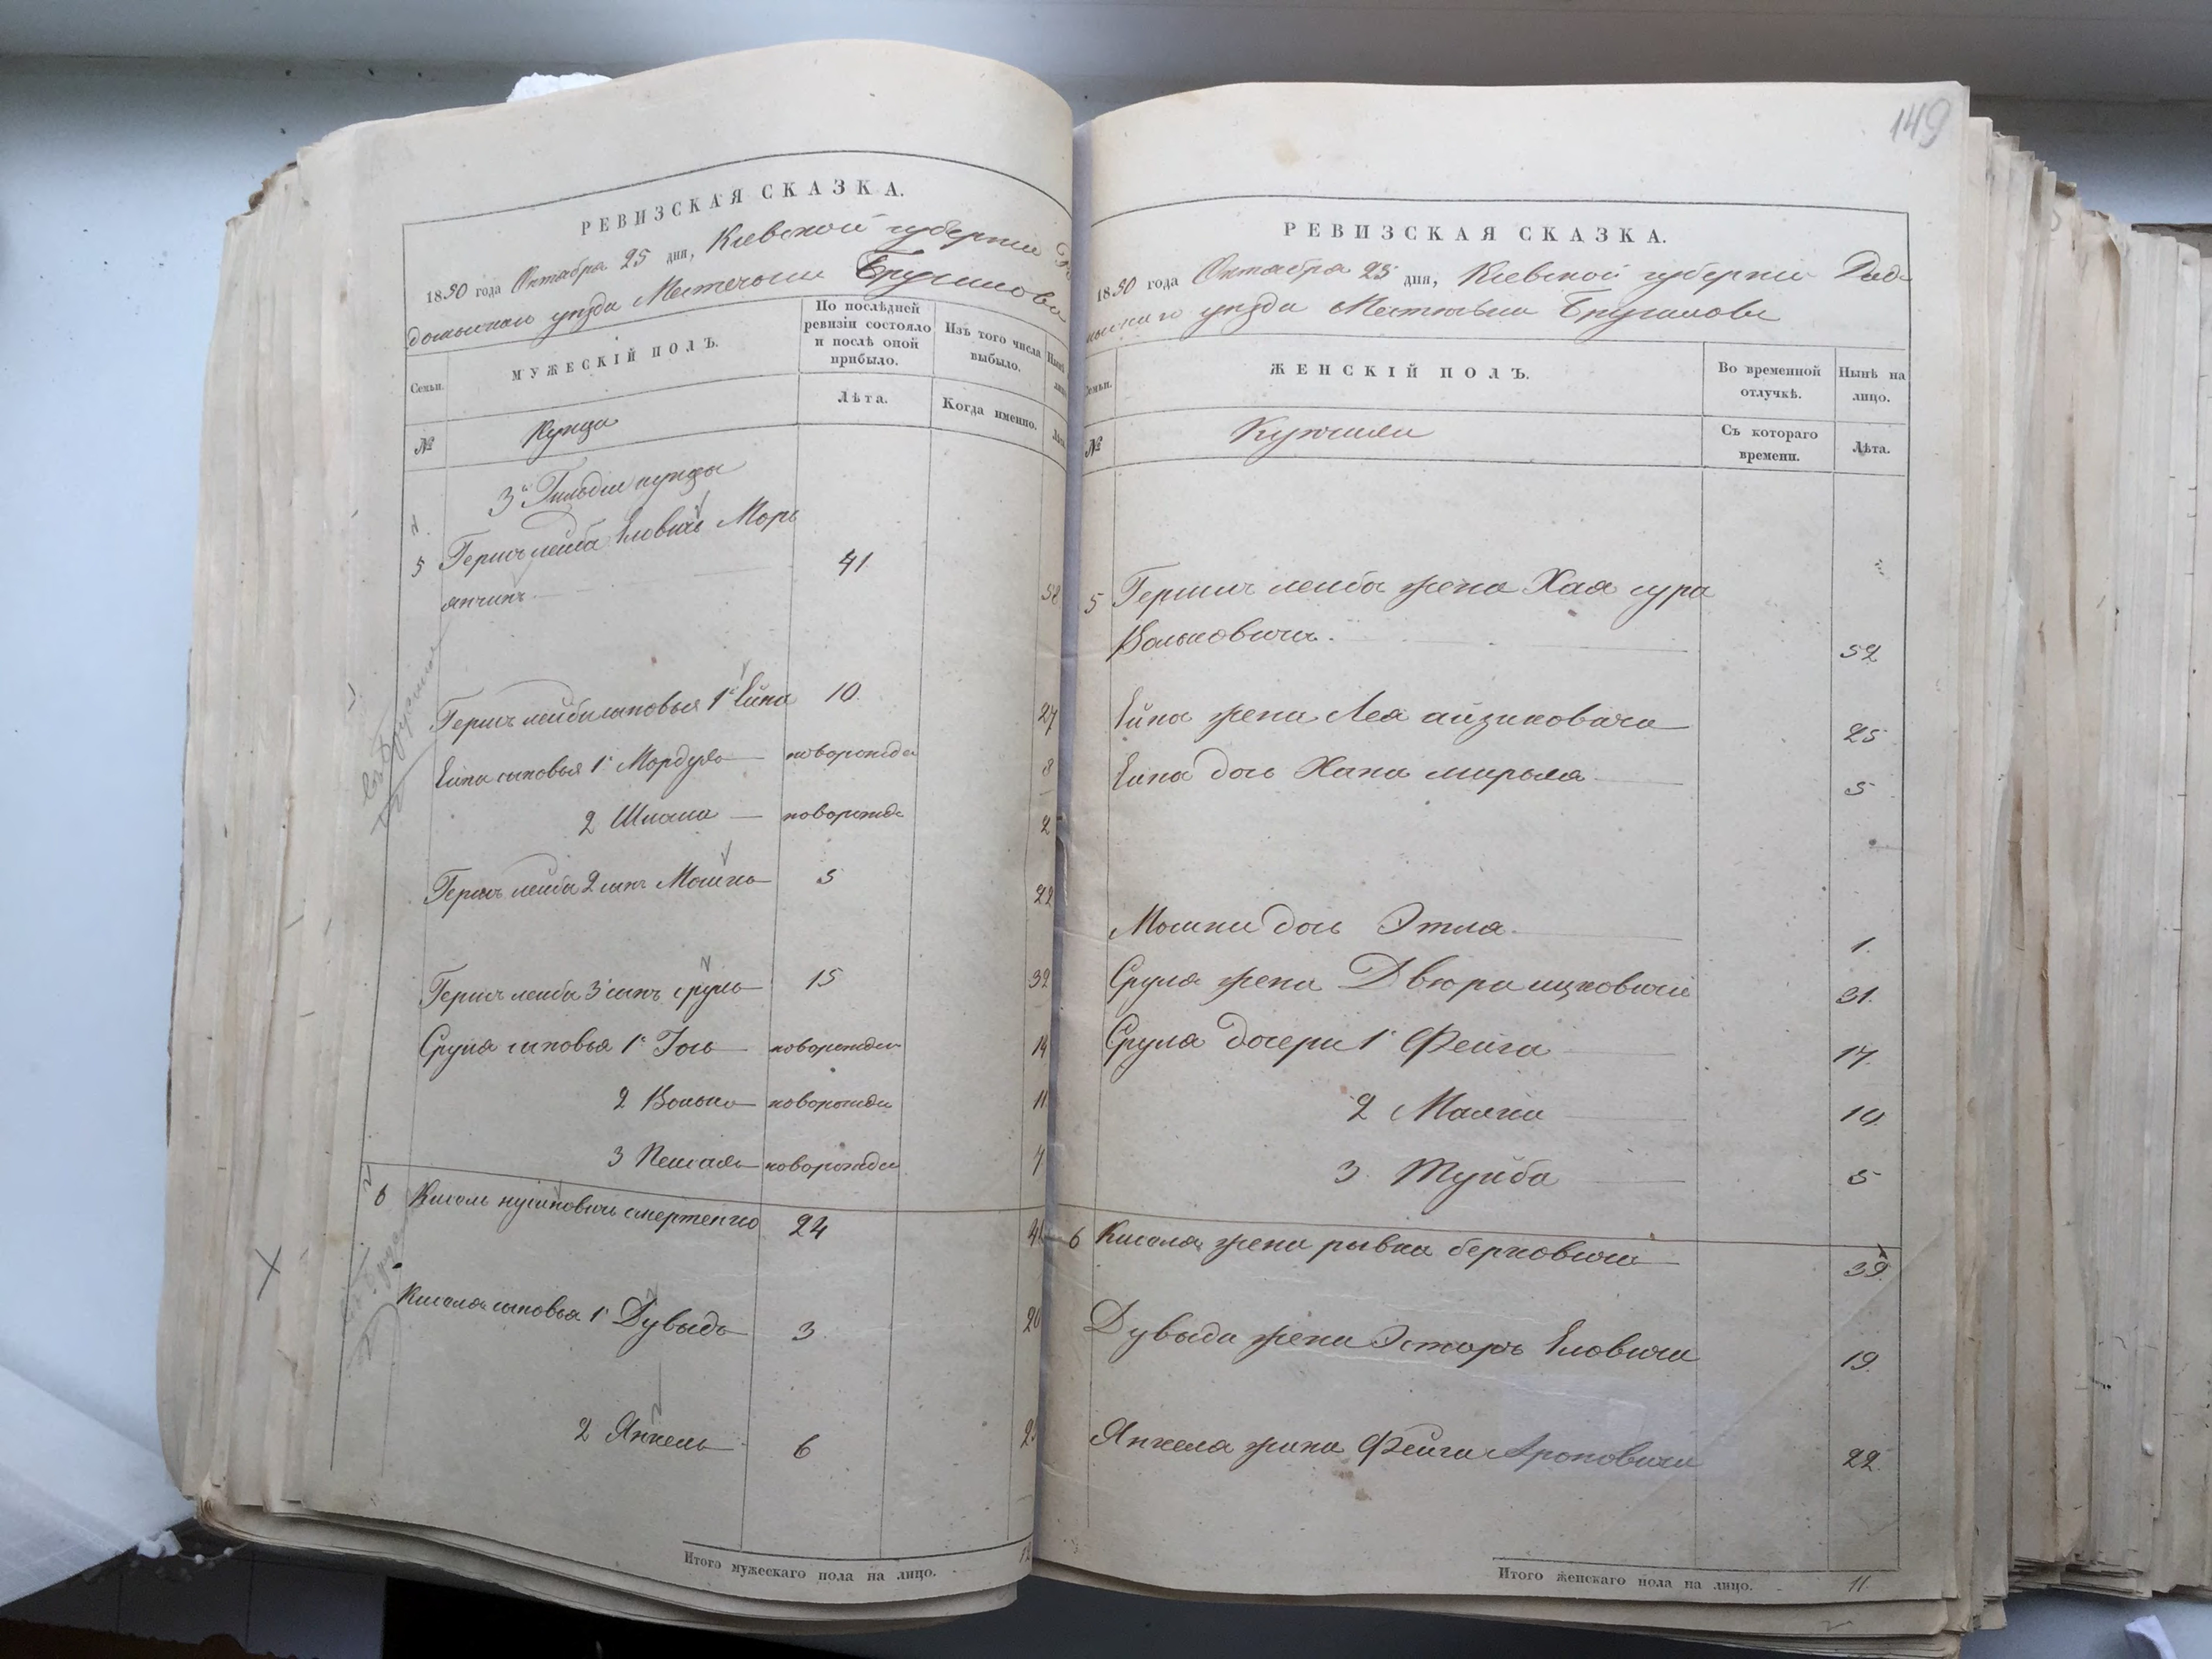 149
РЕВИЗСКАЯ СКАЗКА.
1850 года Октября 25 дня, Кіевской губерніи
домыслкаго уѣзда Местечка Брусилова
Семьи.
МУЖЕСКІЙ ПОЛЪ.
По послѣдней ревизіи состояло и послѣ оной прибыло.
Изъ того числа выбыло.
№
Купцы
Лѣта.
Когда именно.
3й Гильдіи купцы
5 Гершъ лейба Еловичъ Мор 41.
Гершъ лейбы сыновья 1й Ейна 10. 27
Ейна сыновья 1й Мордухъ новорожде 8
2 Шмана новорожде 2
Гершъ лейба 2 сынъ Мошко 5 22
Гершъ лейба 3 сынъ Срулъ 15 32
Срула сыновья 1й Гось новорожде 14
2 Волько новорожде 11
3 новорожде 7
6 Кисель смертенко 24
Киселя сыновья 1й Дувыдъ 3 20
2 Янкель 6
Итого мужескаго пола на лицо.
РЕВИЗСКАЯ СКАЗКА.
1850 года Октября 25 дня, Кіевской губерніи Радо
мыскаго уѣзда Местечка Брусилова
Семьи.
ЖЕНСКІЙ ПОЛЪ.
Во временной отлучкѣ.
Нынѣ на лицо.
№
Съ котораго времени.
Лѣта.
5 Гершъ лейбы жена Хая сура
Вольковичъ. 52
Ейна жена Лея айзиковича 25
Ейна дочь Хана мирьля 5
Мошки дочь Этля 1.
Срула жена Двора ицковичи 31.
Срула дочери 1 Фейга 17.
2 Малка 10.
3. 5
6 Киселя жена рывка берковичи 39.
Дувыда жена Эстеръ Еловичи 19.
Янкеля жина Фейга Ароновичи 22.
Итого женскаго пола на лицо. 11